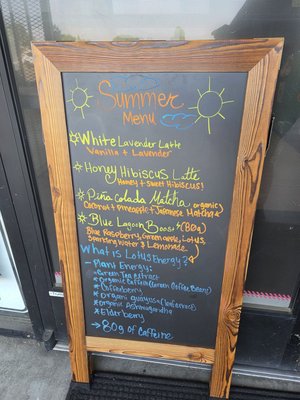 Summer
Menu
White Lavender Latte
Vanilla + Lavender
Honey Hibiscus Latte
Honey + Sweet Hibiscus!
Piña Colada Matcha
Coconut + Pineapple + Japanese Matcha
organic
Blue Lagoon Boost (80g)
Blue Raspberry, Green apple, Lotus,
Sparkling Water & Lemonade
What is Lotus Energy?
- Plant Energy:
Green Tea Extract
Organic Caffeine (Green Coffee Beans)
Coffeeberry
organic
Organic Ashwagandha
Elderberry
→ 80g of Caffeine